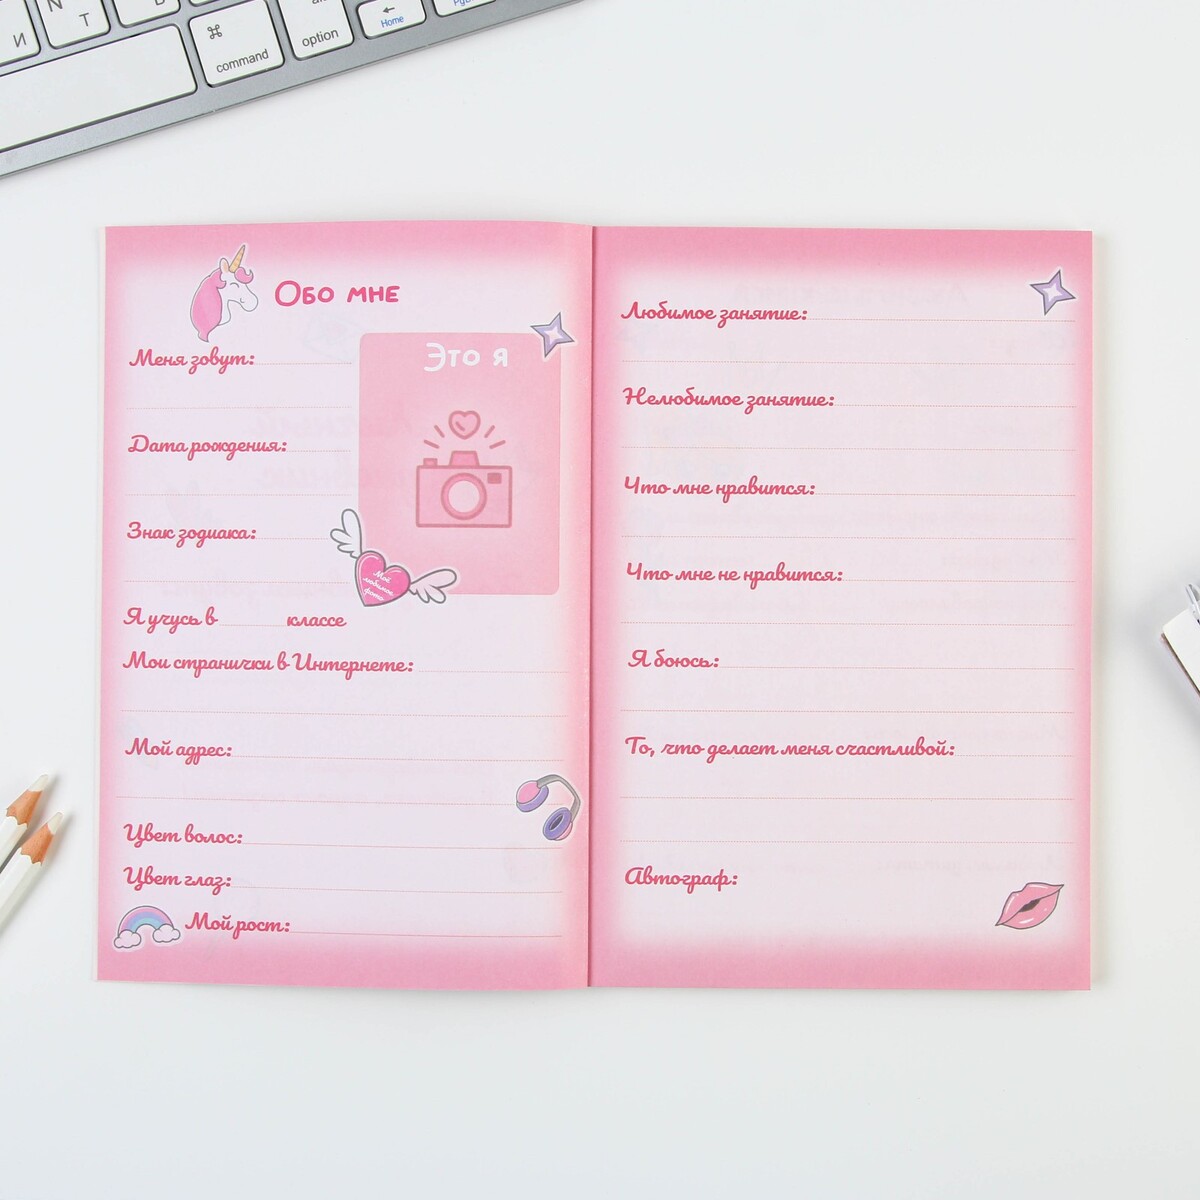 И
Т
⌘
command
option
Home
Обо мне
Меня зовут:
Это я
Дата рождения:
Знак зодиака:
Мой
любимое
фото
Я учусь в классе
Мои странички в Интернете:
Мой адрес:
Цвет волос:
Цвет глаз:
Мой рост:
Любимое занятие:
Нелюбимое занятие:
Что мне нравится:
Что мне не нравится:
Я боюсь:
То, что делает меня счастливой:
Автограф: